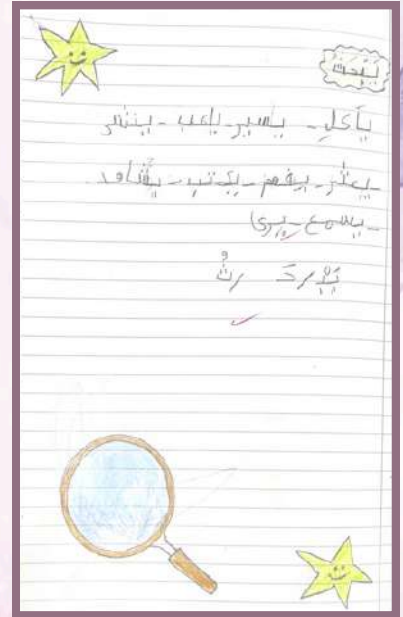 يَبْحَثُ
يأكل - يسير - يلعب - ينشر
يعثر - يفهم - يكتب - يشاهد
- يسمع - يرى